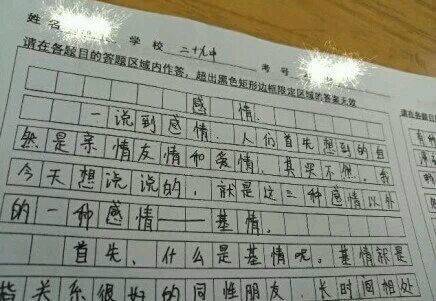 姓名 学校 二十九中 考号
请在各题目的答题区域内作答，超出黑色矩形边框限定区域的答案无效
请在各题目
感情.
一说到感情.人们首先想到的自
然是亲情友情和爱情.其实不然.我
今天想说说的，就是这三种感情以外
的一种感情——基情。
首先，什么是基情呢。基情就是
指关系很好的同性朋友.长时间相处